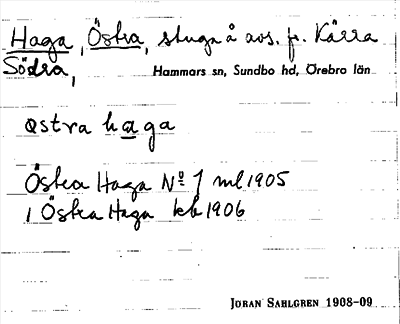 Haga, Östra, stuga å avs. fr. Kärra
Södra,
Hammars sn, Sundbo hd, Örebro län
østra haga
Östra Haga Nº 1 ml 1905
1 Östra Haga kb 1906
JÖRAN SAHLGREN 1908-09